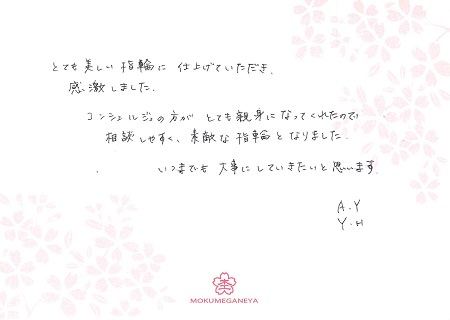 とても美しい指輪に仕上げていただき、
感激しました。
コンシェルジュの方が とても親身になってくれたので
相談しやすく、素敵な指輪となりました。
いつまでも 大事にしていきたいと思います。
A.Y
Y.H
MOKUMEGANEYA